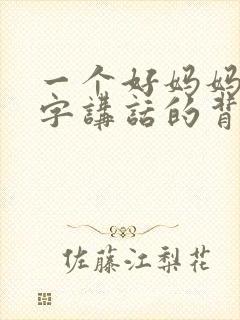 一个好妈妈
字講話的背
佐藤江梨花